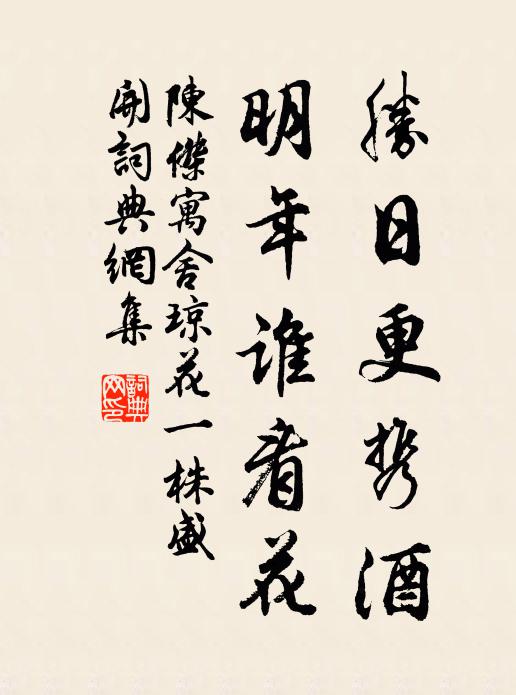 勝日更携酒
明年誰看花
陳傑寓舍琼花一株盛
開詞典網集
詞典
网印